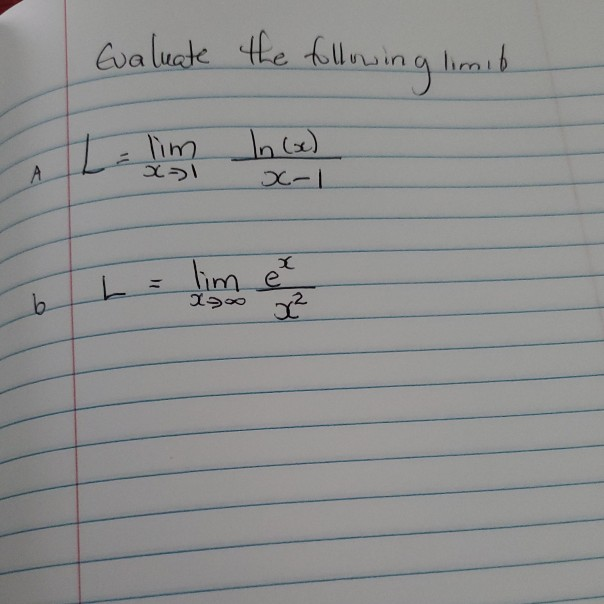 Evaluate the following limit
A L = lim x→1 ln(x) / x-1
b L = lim x→∞ e^x / x^2